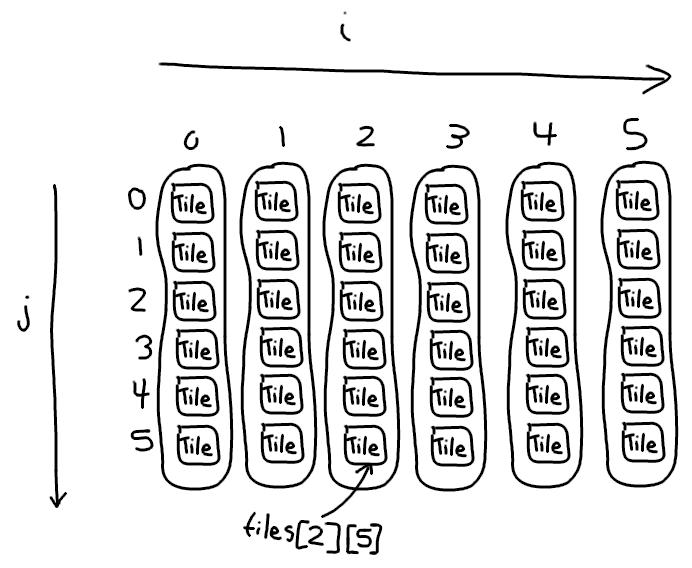 i
0 1 2 3 4 5
0 Tile Tile Tile Tile Tile Tile
1 Tile Tile Tile Tile Tile Tile
j
2 Tile Tile Tile Tile Tile Tile
3 Tile Tile Tile Tile Tile Tile
4 Tile Tile Tile Tile Tile Tile
5 Tile Tile Tile Tile Tile Tile
tiles[2][5]